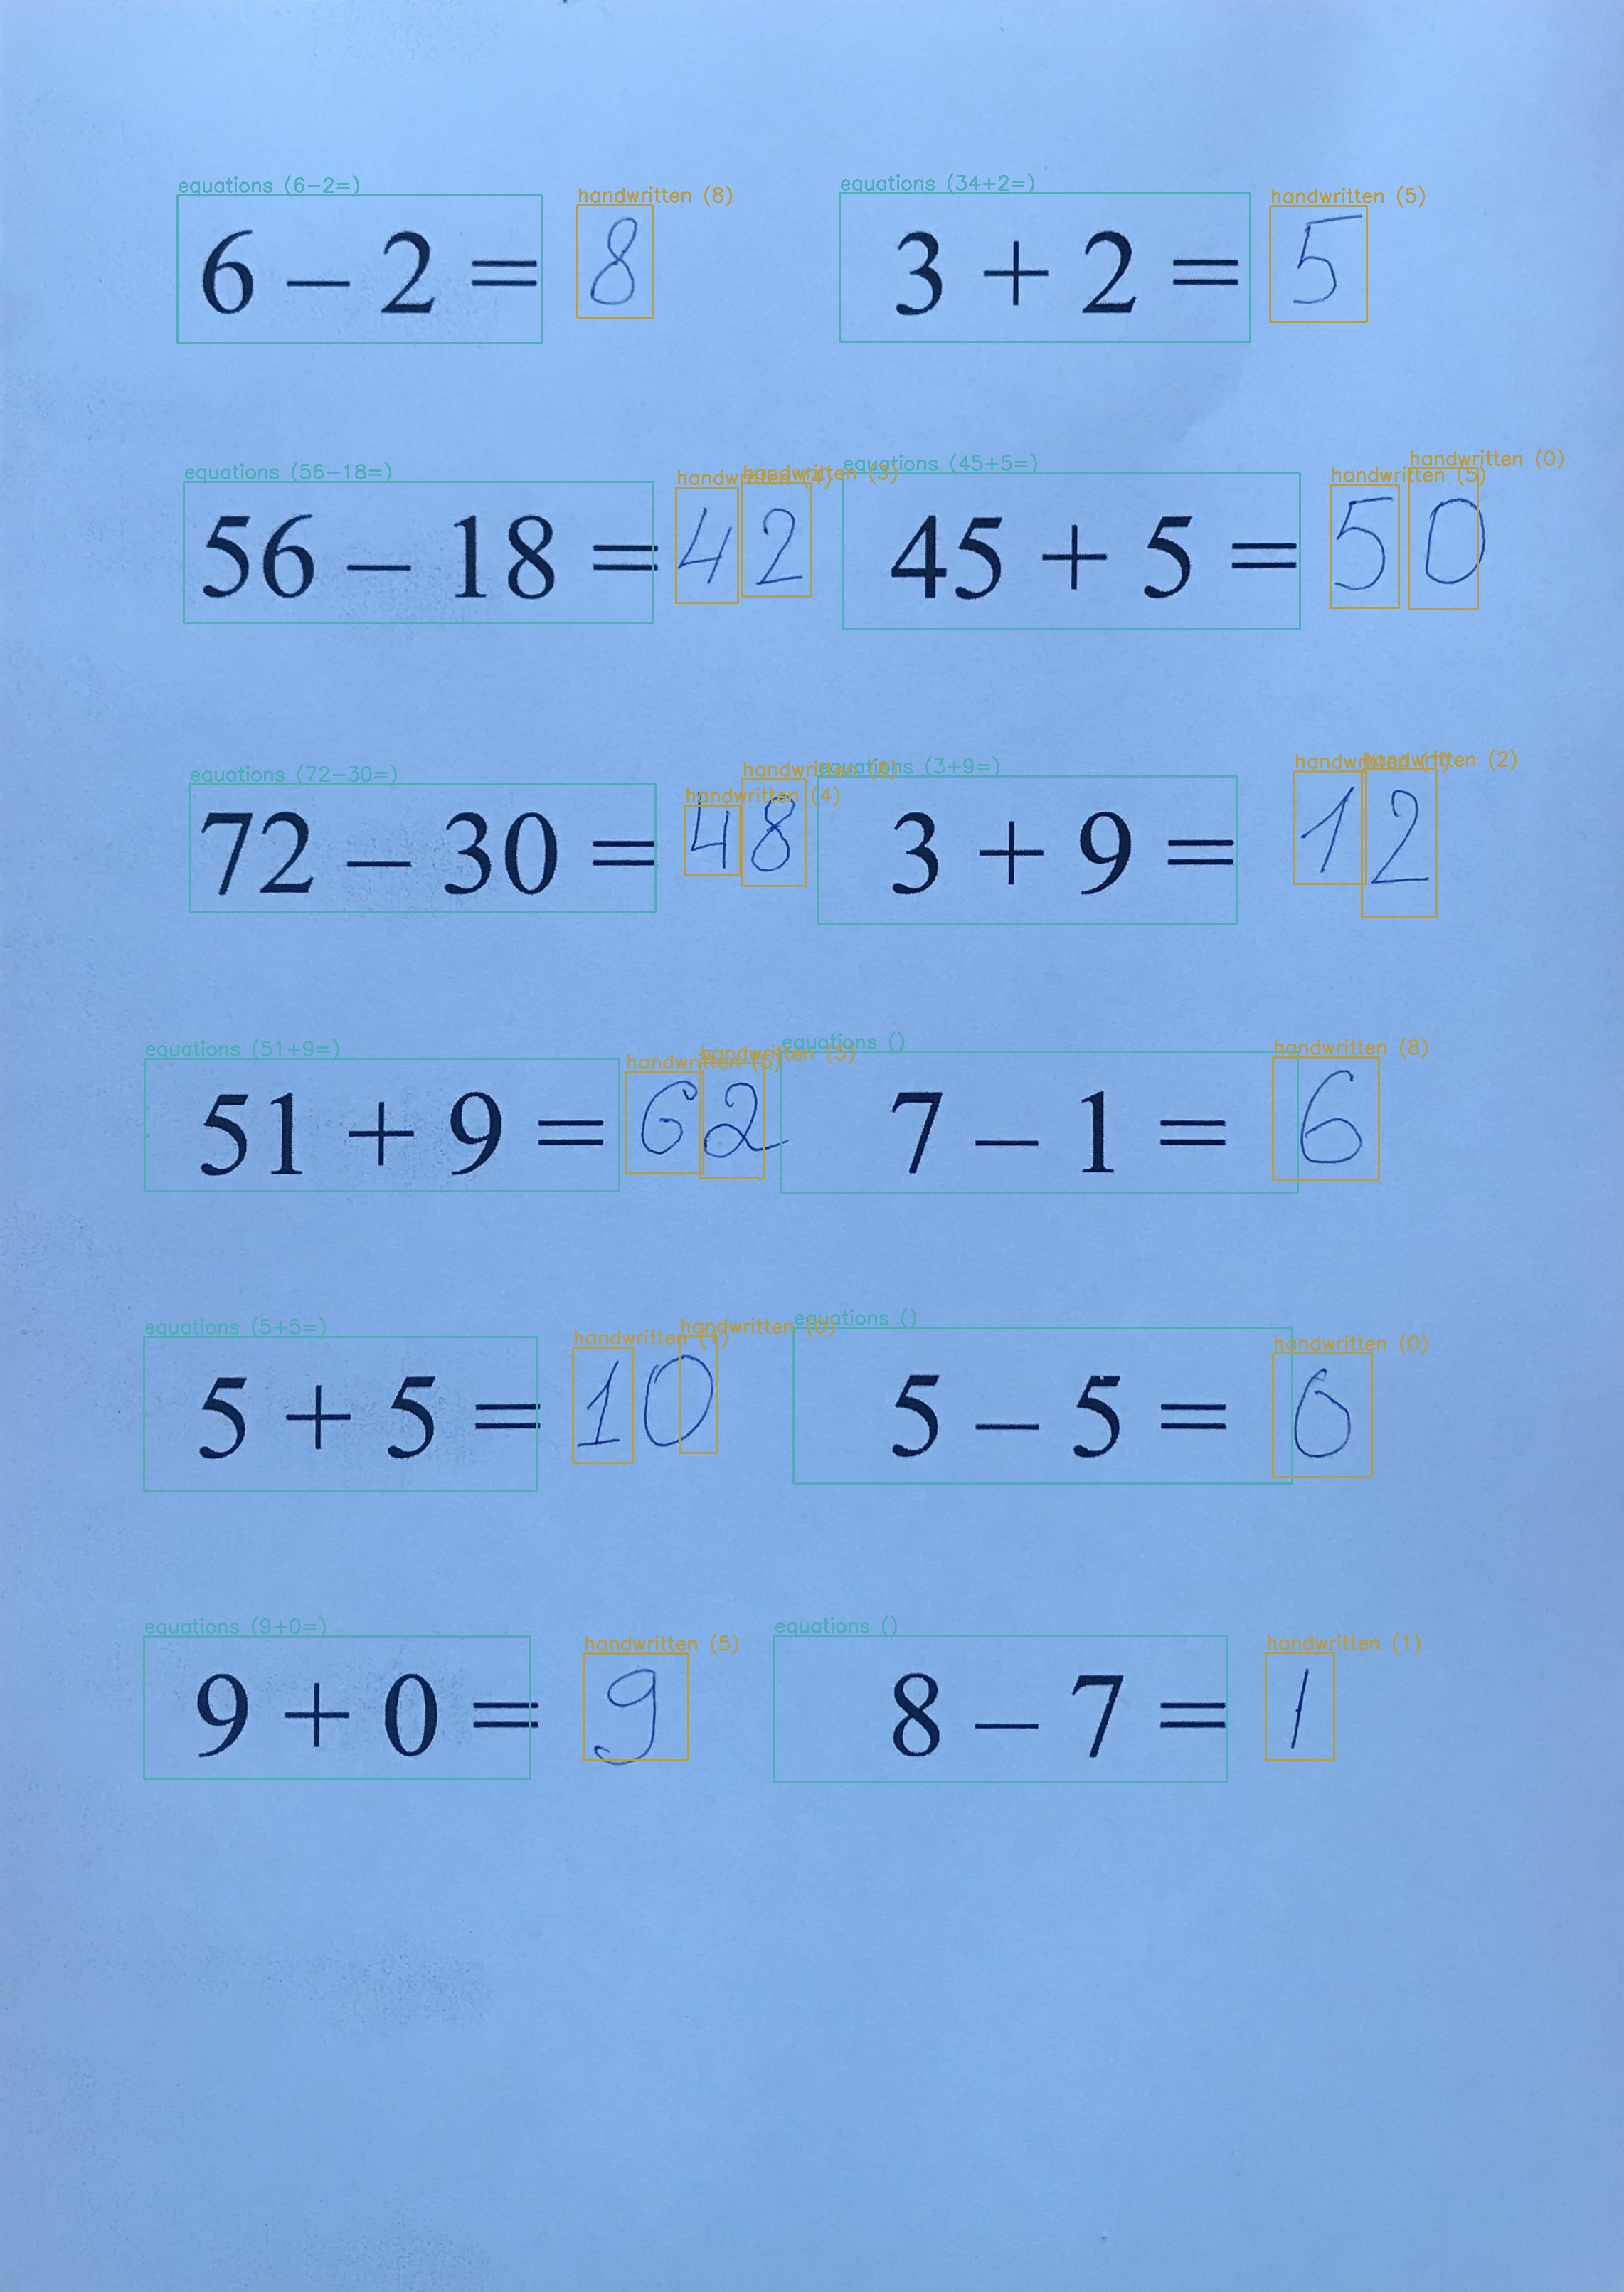 equations (6-2=) handwritten (8) equations (34+2=) handwritten (5)
6 – 2 = 8 3 + 2 = 5
equations (56-18=) handwritten (4) handwritten (3) equations (45+5=) handwritten (5) handwritten (0)
56 – 18 = 42 45 + 5 = 50
equations (72-30=) handwritten (4) handwritten equations (3+9=) handwritten (1) handwritten (2)
72 – 30 = 48 3 + 9 = 12
equations (51+9=) handwritten handwritten (5) equations () handwritten (8)
51 + 9 = 62 7 – 1 = 6
equations (5+5=) handwritten handwritten (0) equations () handwritten (0)
5 + 5 = 10 5 – 5 = 0
equations (9+0=) handwritten (5) equations () handwritten (1)
9 + 0 = 9 8 – 7 = 1